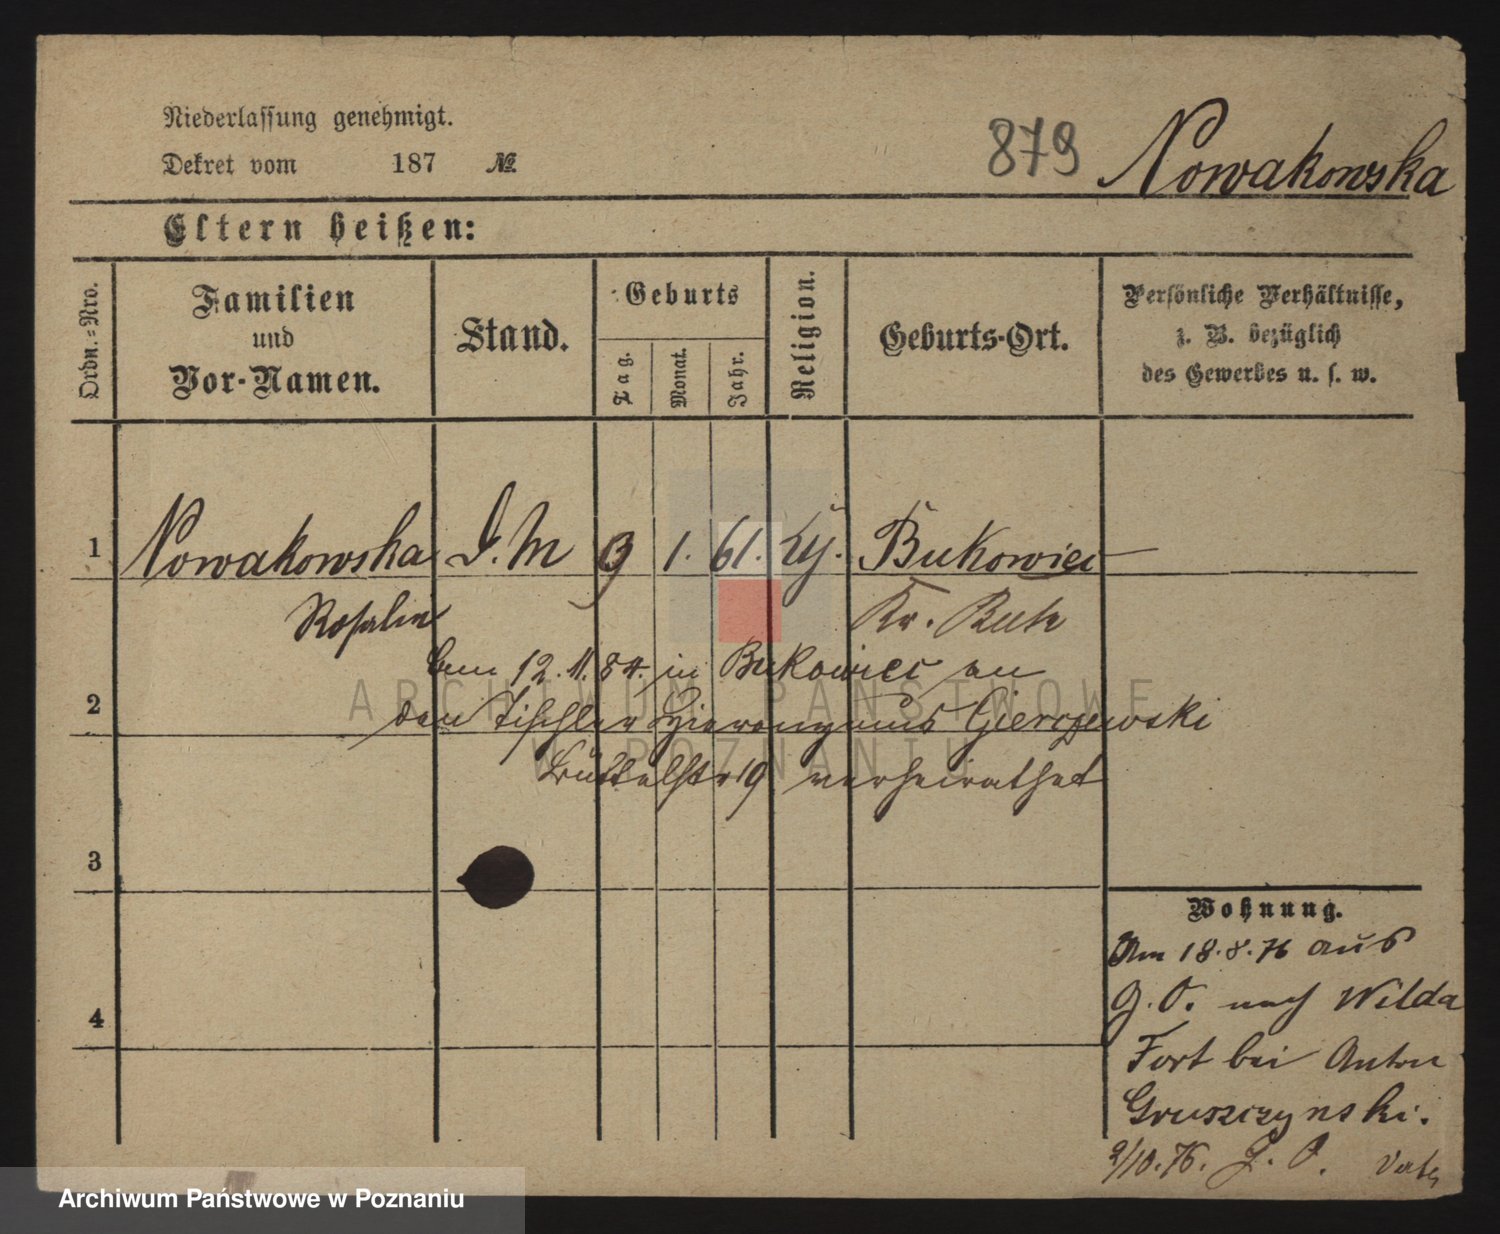 Niederlassung genehmigt.
Dekret vom 187 №
879 Nowakowska
Eltern heißen:
Ordn.-Nro.
Familien
und
Vor-Namen.
Stand.
Geburts
Tag.
Monat.
Jahr.
Religion.
Geburts-Ort.
Persönliche Verhältnisse,
z. B. bezüglich
des Gewerbes u. s. w.
1 Nowakowska D. M 9 1. 61. Bukowiec
Rosalie Kr. Buk
Am 12.11.84. in Bukowiec an
2
den Tischler Hieronymus Gierczewski
19 verheirathet
3
Wohnung.
Am 18.8.76 aus
G. O. nach Wilda
4
Fort bei Anton
Gruszczynski.
2/10.76. G. O.
ARCHIWUM PAŃSTWOWE
W POZNANIU
Archiwum Państwowe w Poznaniu